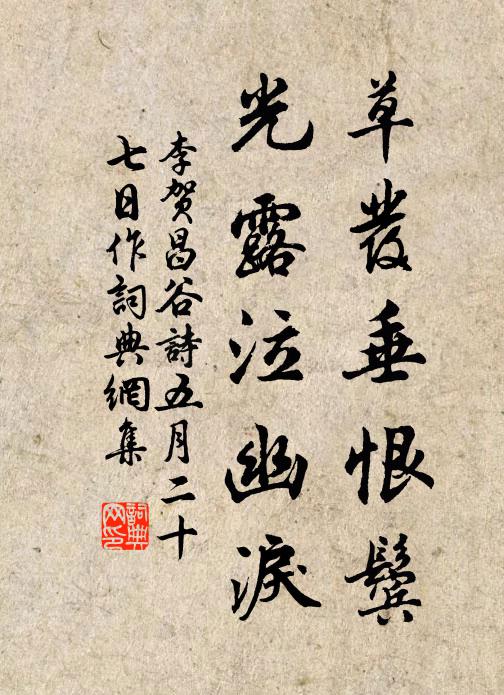 草發垂恨鬢
光露泣幽淚
李賀昌谷詩五月二十
七日作詞典網集
詞典
网印